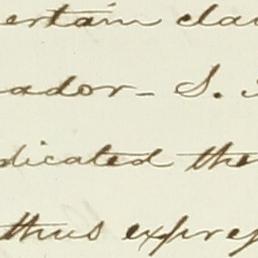 ertain cla
ador- S.
dicated the
thus expres